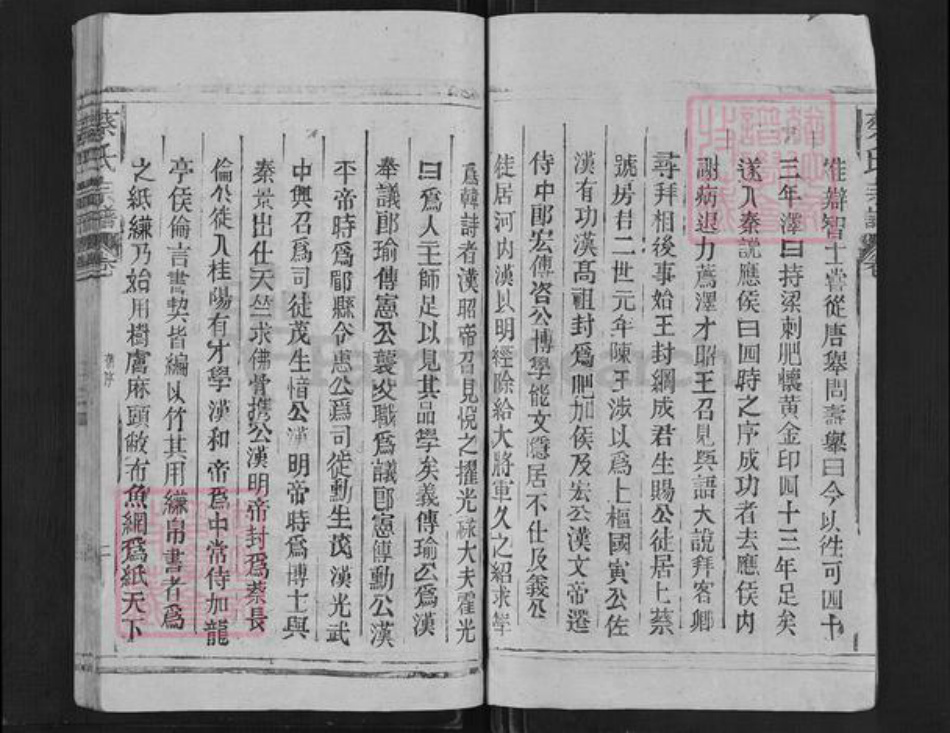 雄辯智士嘗從唐舉問壽舉曰今以徃可四十
三年澤曰持梁刺肥懷黃金印四十三年足矣
遂入秦說應侯曰四時之序成功者去應侯内
謝病退力薦澤才昭王召見與語大說拜客卿
尋拜相後事始王封綱成君生賜公徒居上蔡
號房君二世元年陳王涉以爲上樞國寅公佐
漢有功漢高祖封爲肥加侯及宏公漢文帝遷
侍中郎宏傳咨公博學能文隱居不仕及義公
徒居河内漢以明經除給大將軍久之紹求學
爲韓詩者漢昭帝召見悅之擢光祿大夫霍光
曰爲人主師足以見其品學矣義傳瑜公爲漢
奉議郎瑜傳憲公襲父職爲議郎憲傳勳公漢
平帝時爲郿縣令惠公爲司徒勳生茂漢光武
中興召爲司徒茂生愔公漢明帝時爲博士與
秦景出仕天竺求佛骨攜公漢明帝封爲蔡長
倫公徒入桂陽有才學漢和帝爲中常侍加龍
亭侯倫言書契皆編以竹其用縑帛書者爲
之紙縑乃始用樹膚麻頭敝布魚網爲紙天下
蔡氏宗譜